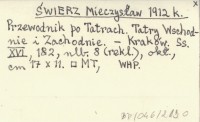 ŚWIERZ Mieczysław 1912 k.
Przewodnik po Tatrach. Tatry Wschod-
nie i Zachodnie. – Kraków. Ss.
XVI, 182, nlb. 8 (rekl.), okł.,
cm 17 x 11. □ MT, WHP.